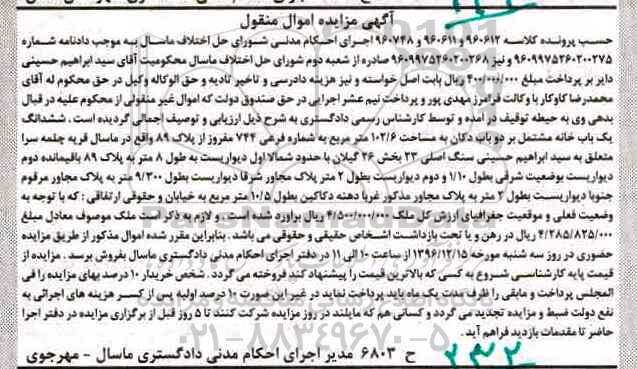 آگهی مزایده اموال منقول
حسب پرونده کلاسه ۹۶۰۶۱۲ و ۹۶۰۶۱۱ و ۹۶۰۷۴۸ اجرای احکام مدنی شورای حل اختلاف ماسال به موجب دادنامه شماره
۹۶۰۹۹۷۵۲۶۰۲۰۰۲۷۵ و نیز ۹۶۰۹۹۷۵۲۶۰۲۰۰۲۶۸ صادره از شعبه دوم شورای حل اختلاف ماسال محکومیت آقای سید ابراهیم حسینی
دایر بر پرداخت مبلغ ۴۰۰/۰۰۰/۰۰۰ ریال بابت اصل خواسته و نیز هزینه دادرسی و تاخیر تادیه و حق الوکاله وکیل در حق محکوم له آقای
محمدرضا کاوکار با وکالت فرامرز مهدی پور و پرداخت نیم عشر اجرایی در حق صندوق دولت که اموال غیر منقولی از محکوم علیه در قبال
بدهی وی به حیطه توقیف در آمده و توسط کارشناس رسمی دادگستری به شرح ذیل ارزیابی و توصیف اجمالی گردیده است . ششدانگ
یک باب خانه مشتمل بر دو باب دکان به مساحت ۱۰۲/۶ متر مربع به شماره فرعی ۷۴۴ مفروز از پلاک ۸۹ واقع در ماسال قریه چلمه سرا
متعلق به سید ابراهیم حسینی سنگ اصلی ۳۳ بخش ۲۶ گیلان با حدود شمالا اول دیواریست به طول ۸ متر به پلاک ۸۹ باقیمانده دوم
دیواریست بوضعیت شرقی بطول ۱/۱۰ و دوم دیواریست بطول ۲ متر پلاک مجاور شرقا دیواریست بطول ۹/۲۰۰ متر به پلاک مجاور مرقوم
جنوبا دیواریست بطول ۲ متر به پلاک مجاور مذکور غربا دهنه دکاکین بطول ۱۰/۵ متر مربع به خیابان و حقوقی ارتفاقی : که با توجه به
وضعیت فعلی و موقعیت جغرافیای ارزش کل ملک ۴/۵۰۰/۰۰۰/۰۰۰ ریال براورد شده است . و لازم به ذکر است ملک موصوف معادل مبلغ
۴/۲۸۵/۸۲۵/۰۰۰ ریال در رهن و یا تحت بازداشت اشخاص حقیقی و حقوقی می باشد . بنابراین مقرر شده اموال مذکور از طریق مزایده
حضوری در روز سه شنبه مورخه ۱۳۹۶/۱۲/۱۵ از ساعت ۱۰ الی ۱۱ در دفتر اجرای احکام مدنی دادگستری ماسال بفروش برسد . مزایده از
قیمت پایه کارشناسی شروع به کسی که بالاترین قیمت را پیشنهاد کند فروخته می گردد . شخص خریدار ۱۰ درصد بهای مزایده را فی
المجلس پرداخت و مابقی را ظرف مدت یک ماه باید پرداخت نماید در غیر این صورت ۱۰ درصد اولیه پس از کسر هزینه های اجرائی به
نفع دولت ضبط و مزایده تجدید می گردد و کسانی هم که مایلند در روز مزایده شرکت کنند تا ۵ روز قبل از برگزاری مزایده در دفتر اجرا
حاضر تا مقدمات بازدید فراهم آید .
۰۲۱-۸۸۳۴۹۶۷۰-۵
ح ۶۸۰۳ مدیر اجرای احکام مدنی دادگستری ماسال - مهرجوی